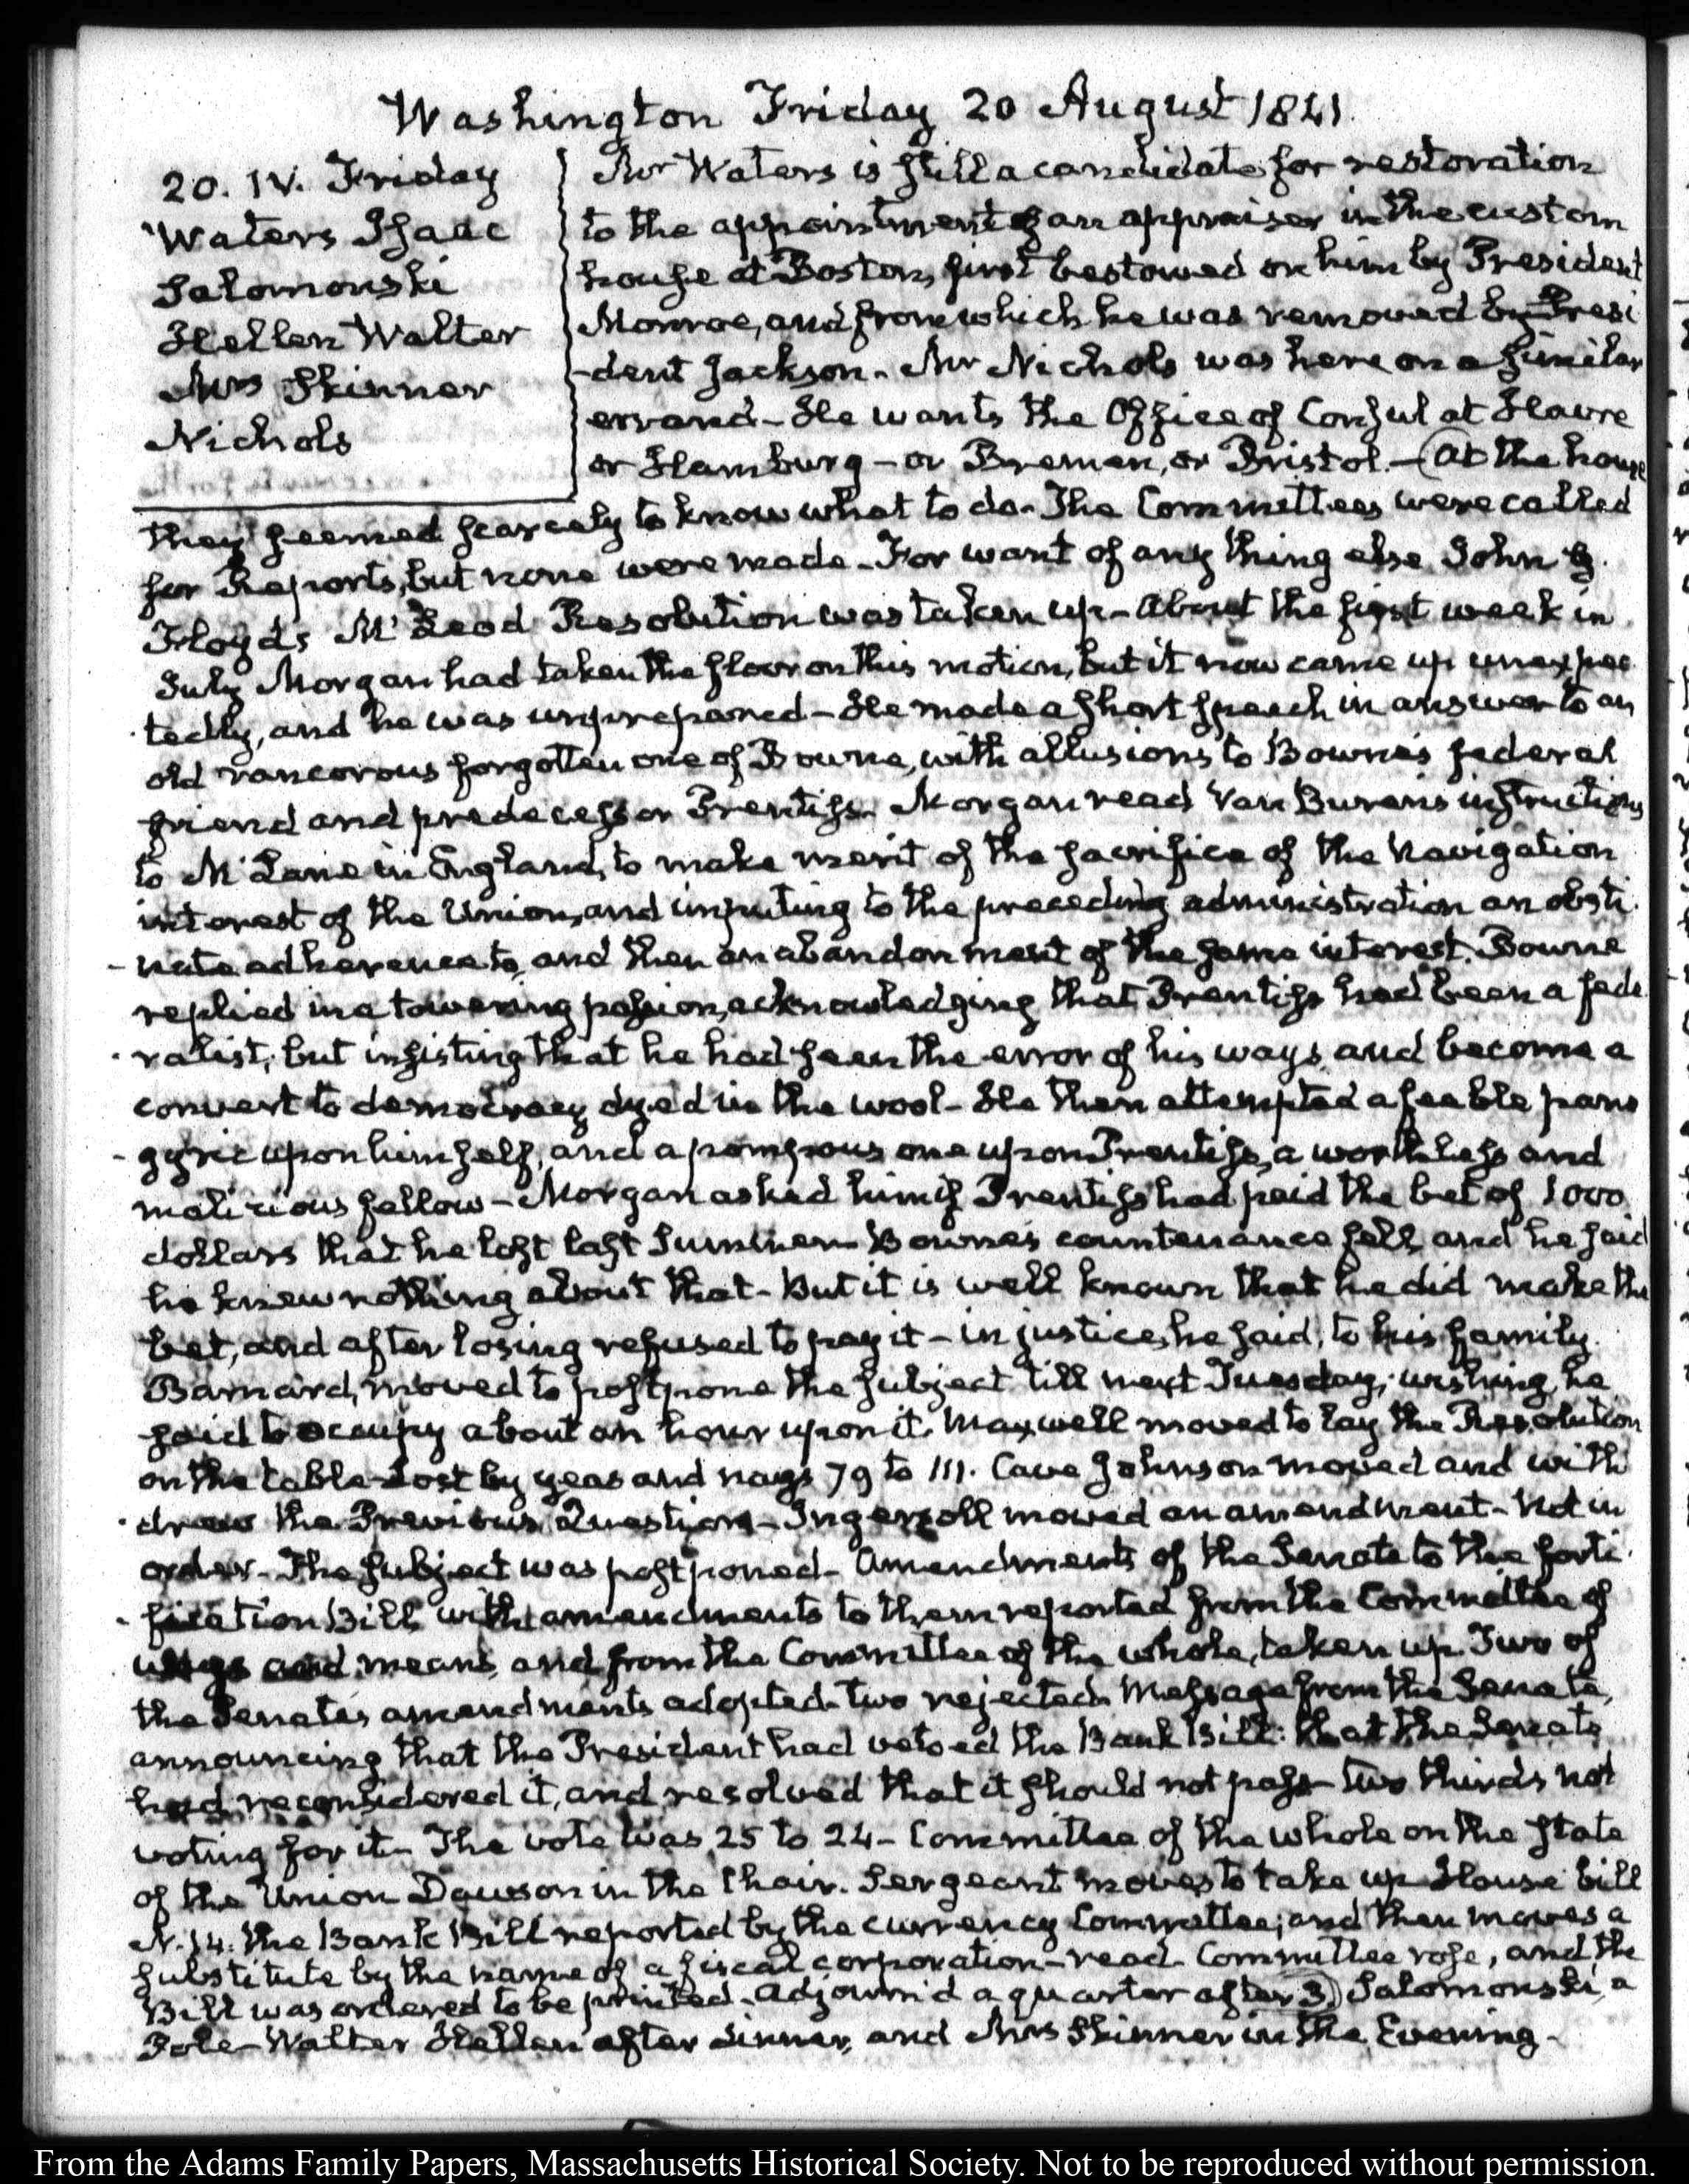 Washington Friday 20 August 1841.
20. IV. Friday
Waters Isaac
Salomonski
Hellen Walter
Mrs Skinner
Nichols
Mr Waters is still a candidate for restoration
to the appointment of an appraiser in the custom
house at Boston, first bestowed on him by President
Monroe, and from which he was removed by Presi
-dent Jackson. Mr Nichols was here on a similar
errand - He wants the Office of Consul at Havre
or Hamburg - or Bremen, or Bristol. - (At the house
they seemed scarcely to know what to do. The Committees were called
for Reports, but none were made. For want of any thing else John G.
Floyd's McLeod Resolution was taken up - About the first week in
July Morgan had taken the floor on this motion, but it now came up unexpec
-tedly, and he was unprepared - He made a short speech in answer to an
old rancorous forgotten one of Bowne, with allusions to Bowne's federal
friend and predecessor Prentiss. Morgan read Van Buren's instructions
to McLane in England, to make merit of the sacrifice of the Navigation
interest of the Union, and imputing to the preceding administration an obsti
-nate adherence to, and then an abandonment of the same interest. Bowne
replied in a towering passion, acknowledging that Prentiss had been a fede
-ralist; but insisting that he had seen the error of his ways and become a
convert to democracy dyed in the wool - He then attempted a feeble pane
-gyric upon himself, and a pompous one upon Prentiss, a worthless and
malicious fellow - Morgan asked him if Prentiss had paid the bet of 1000
dollars that he lost last Summer. Bowne's countenance fell, and he said
he knew nothing about that - But it is well known that he did make the
bet, and after losing refused to pay it - in justice, he said, to his family.
Barnard, moved to postpone the subject till next Tuesday; wishing, he
said to occupy about an hour upon it. Maxwell moved to lay the Resolution
on the table - Lost by yeas and nays 79 to 111. Cave Johnson moved and with
-drew the Previous Question - Ingersoll moved an amendment - Not in
order. The subject was postponed - Amendments of the Senate to the forti
-fication Bill with amendments to them reported from the Committee of
ways and means, and from the Committee of the whole, taken up. Two of
the Senate's amendments adopted. two rejected. Message from the Senate,
announcing that the President had vetoed the Bank Bill: that the Senate
had reconsidered it, and resolved that it should not pass - two thirds not
voting for it - The vote was 25 to 24 - Committee of the whole on the state
of the Union Dawson in the Chair. Sergeant moves to take up House bill
N. 14. the Bank Bill reported by the currency Committee; and then moves a
substitute by the name of a fiscal corporation - read. Committee rose, and the
Bill was ordered to be printed. Adjourn'd a quarter after 3) Salomonski, a
Pole - Walter Hellen after dinner, and Mrs Skinner in the Evening -
From the Adams Family Papers, Massachusetts Historical Society. Not to be reproduced without permission.